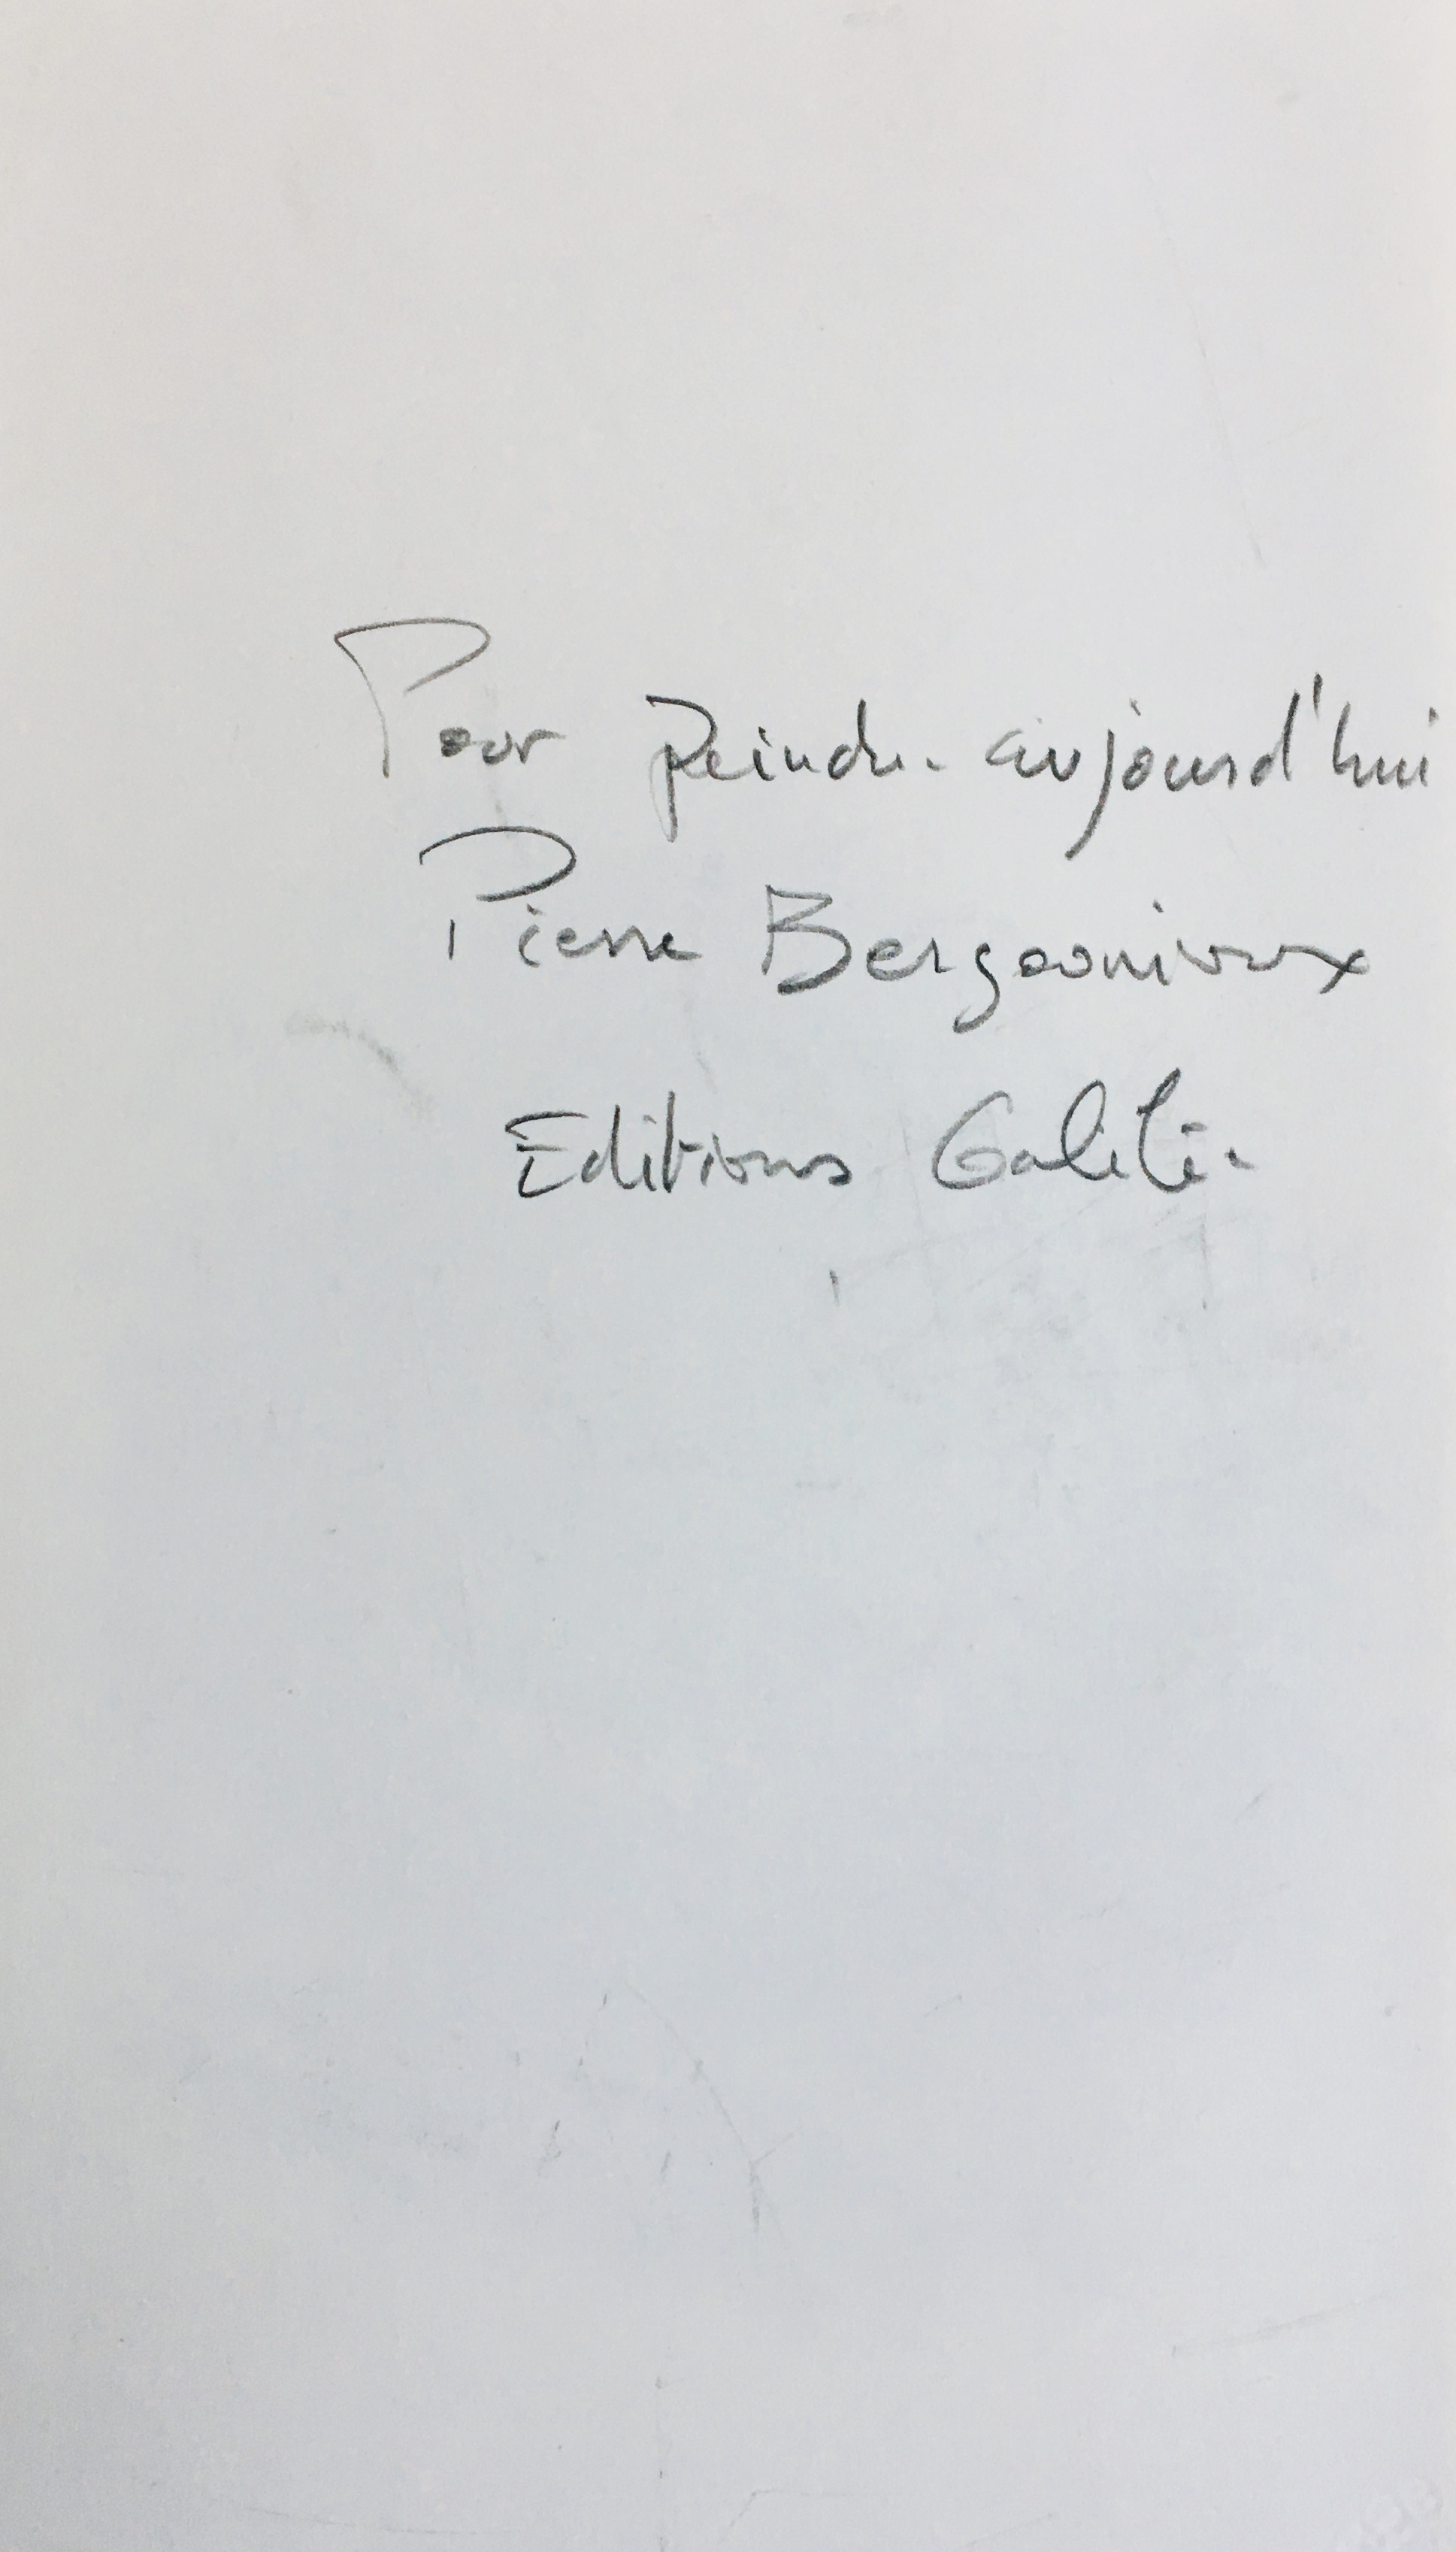 Pour peindre aujourd'hui
Pierre Bergounioux
Editions Galilée